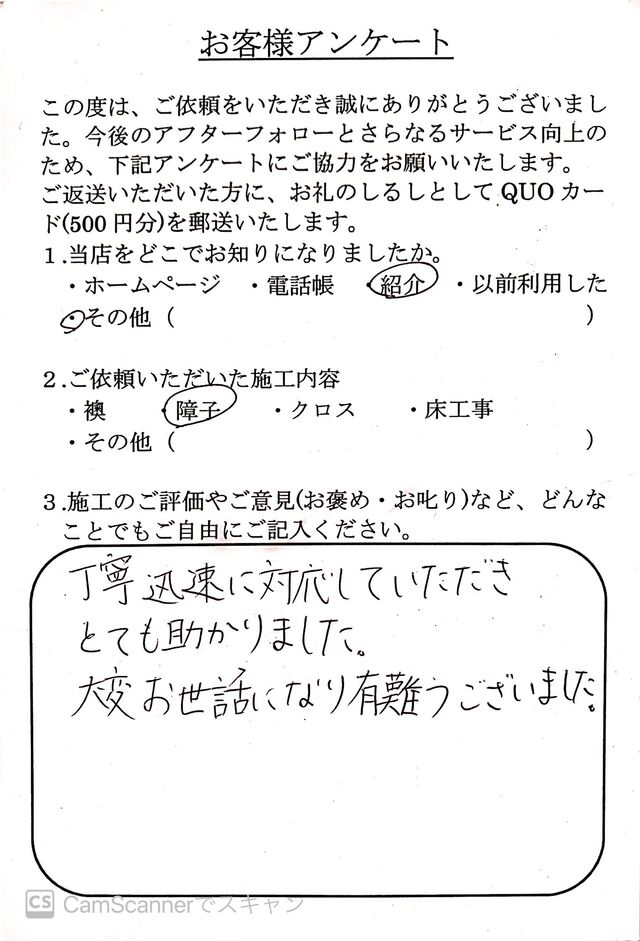 お客様アンケート
この度は、ご依頼をいただき誠にありがとうございまし
た。今後のアフターフォローとさらなるサービス向上の
ため、下記アンケートにご協力をお願いいたします。
ご返送いただいた方に、お礼のしるしとして QUO カー
ド(500 円分)を郵送いたします。
1.当店をどこでお知りになりましたか。
・ホームページ ・電話帳 ・紹介 ・以前利用した
・その他 ( )
2.ご依頼いただいた施工内容
・襖 ・障子 ・クロス ・床工事
・その他 ( )
3.施工のご評価やご意見(お褒め・お叱り)など、どんな
ことでもご自由にご記入ください。
丁寧迅速に対応していただき
とても助かりました。
大変お世話になり有難うございました。
CS CamScannerでスキャン